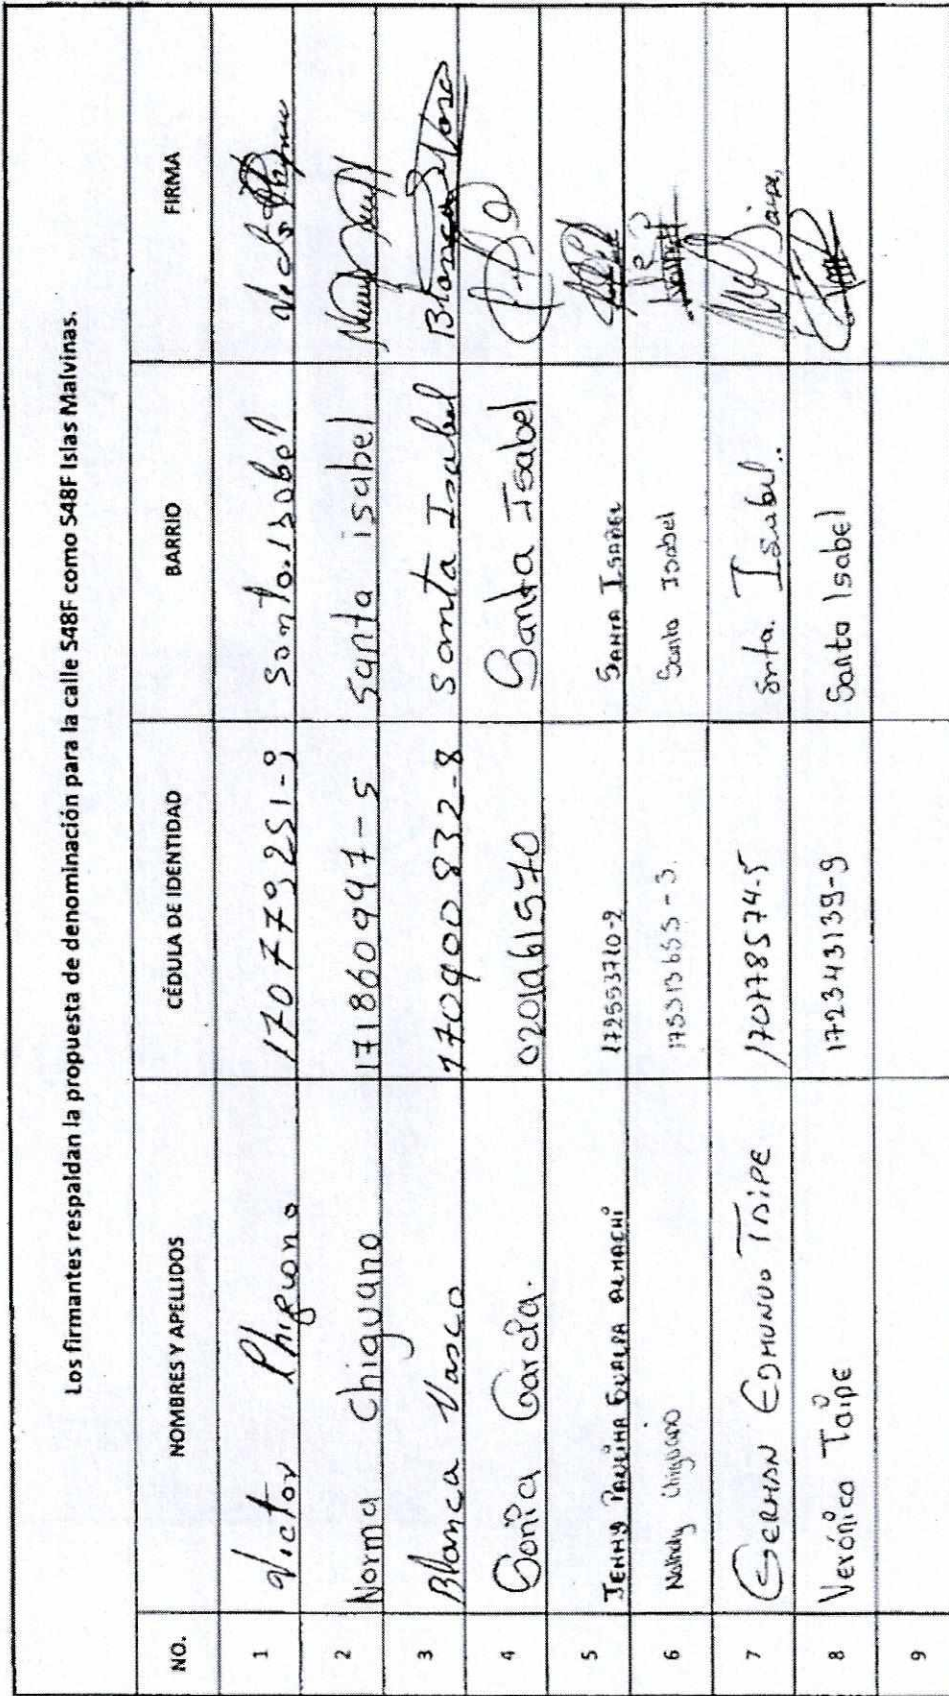 Los firmantes respaldan la propuesta de denominación para la calle S48F como S48F Islas Malvinas.
NO. NOMBRES Y APELLIDOS CÉDULA DE IDENTIDAD BARRIO FIRMA
1 Victor Chiguano 170779251-9 Santa Isabel
2 Norma Chiguano 171860997-5 Santa isabel
3 Blanca Vasco 170900832-8 Santa Isabel Blanca Vasco
4 Sonia García. 0201961570 Santa Isabel
5 JENNY PAULINA GUALPA ALMACHI 172553710-2 SANTA ISABEL
6 Chiguano 175313653-3 Santa Isabel
7 GERMAN EDMUNDO TAIPE 170778574-5 Snta. Isabel..
8 Verónica Taipe 172343139-9 Santa Isabel
9